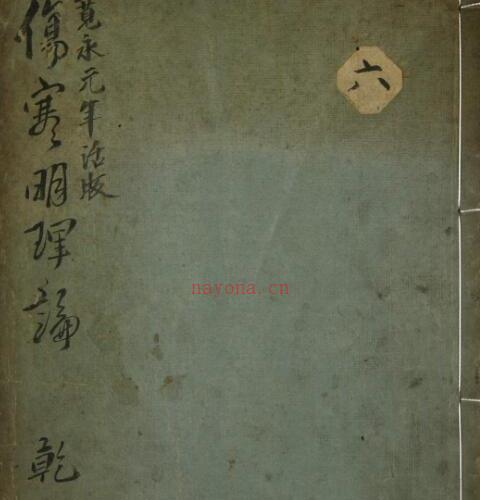 六
寛永元年活版
傷寒明理論 乾
nayona.cn